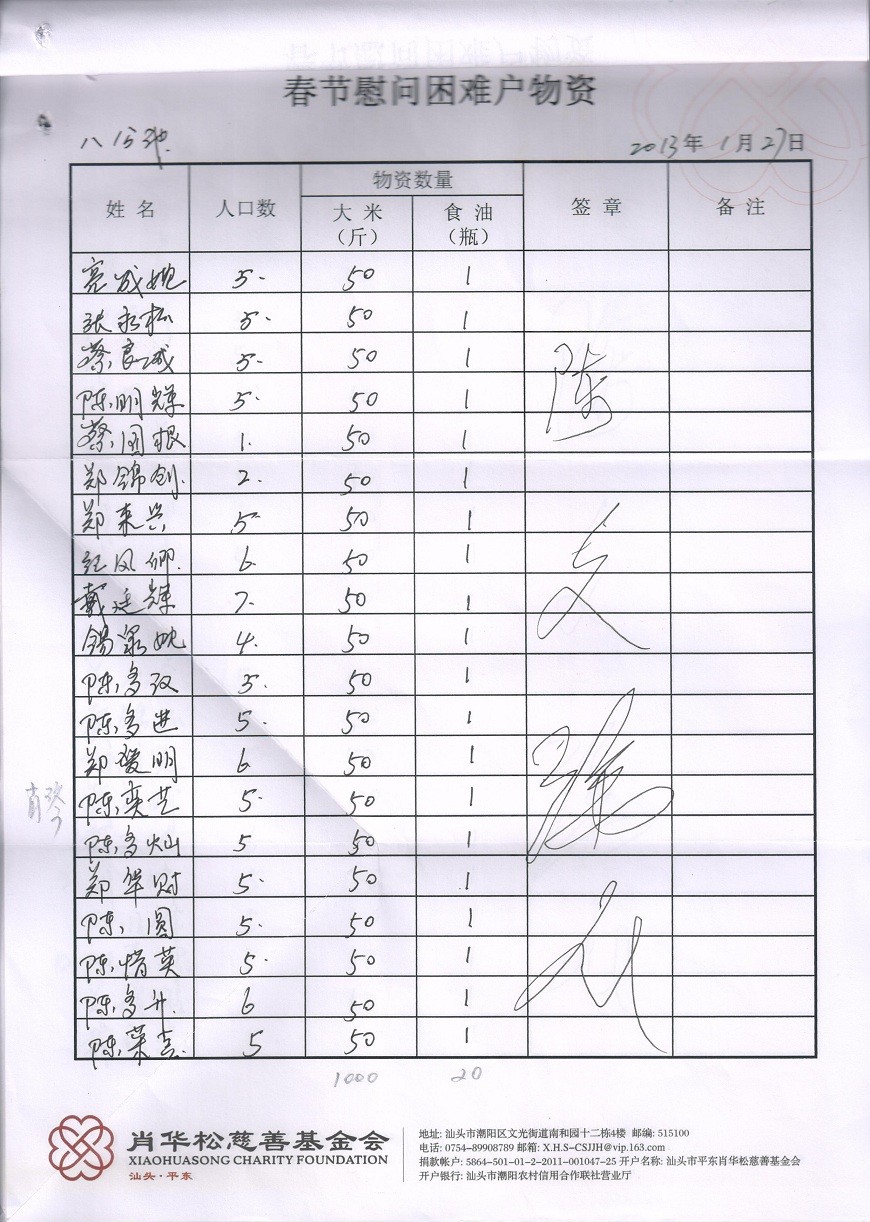 春节慰问困难户物资
2013年 1月27日
姓 名 人口数 物资数量 签 章 备 注
大 米 （斤） 食 油 （瓶）
5. 50 1
张 5. 50 1
蔡良城 5. 50 1
陈明辉 5. 50 1
蔡国根 1. 50 1
郑锦创 2. 50 1
郑来兴 5 50 1
红凤卿 6. 50 1
戴廷辉 7. 50 1
锡泉 4. 50 1
陈多 5. 50 1
陈多进 5. 50 1
郑爱明 6 50 1
陈奕芝 5. 50 1
陈多灿 5 50 1
郑华财 5. 50 1
陈圆 5. 50 1
陈惜英 5. 50 1
陈多升 6 50 1
陈 5 50 1
1000 20
肖华松慈善基金会
XIAOHUASONG CHARITY FOUNDATION
汕头·平东
地址: 汕头市潮阳区文光街道南和园十二栋4楼 邮编: 515100
电话: 0754-89908789 邮箱: X.H.S-CSJJH@vip.163.com
捐款帐户: 5864-501-01-2-2011-001047-25 开户名称: 汕头市平东肖华松慈善基金会
开户银行: 汕头市潮阳农村信用合作联社营业厅